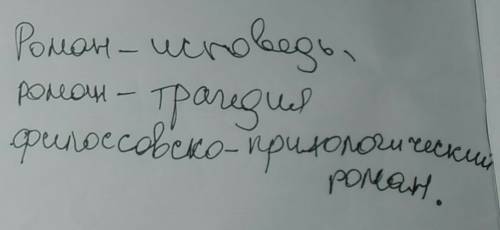 Роман - исповедь,
роман - трагедия
филоссовско - прихологический
роман.